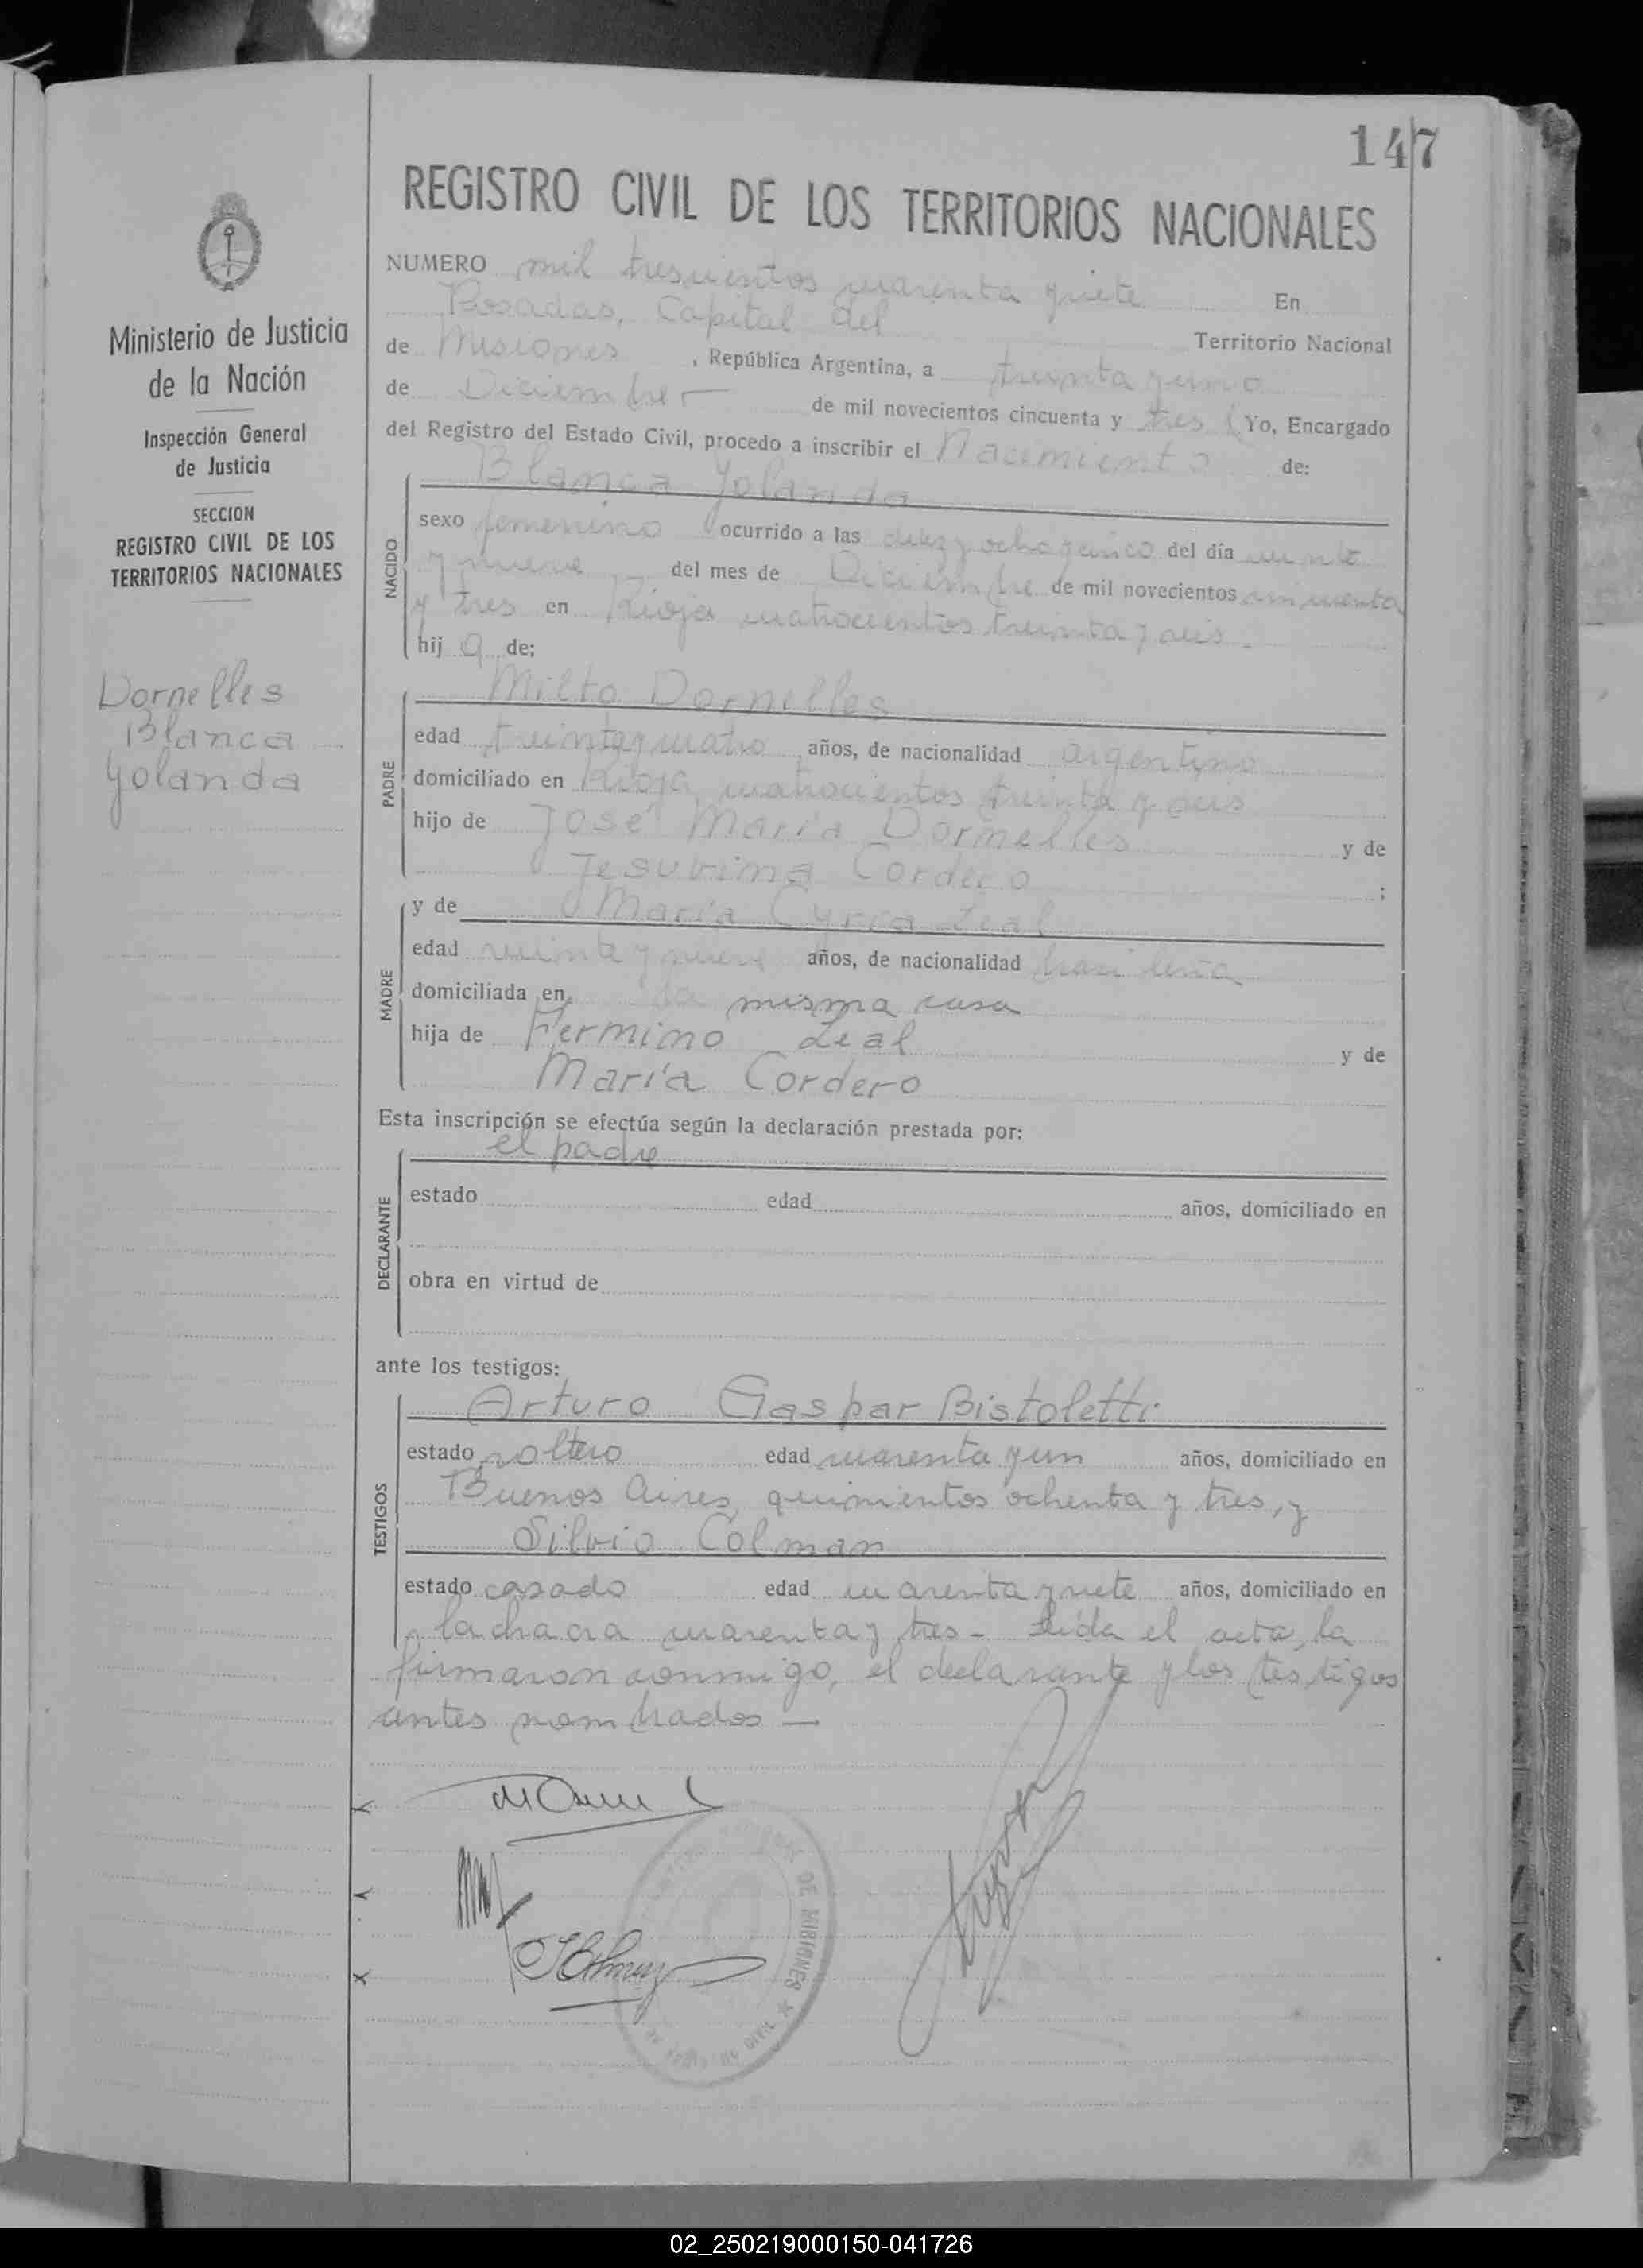 147
REGISTRO CIVIL DE LOS TERRITORIOS NACIONALES
Ministerio de Justicia
de la Nación
Inspección General
de Justicia
SECCION
REGISTRO CIVIL DE LOS
TERRITORIOS NACIONALES
Dornelles
Blanca
Yolanda
NUMERO mil trescientos cuarenta y siete En
Posadas, Capital del Territorio Nacional
de Misiones, República Argentina, a treinta y uno
de Diciembre de mil novecientos cincuenta y tres Yo, Encargado
del Registro del Estado Civil, procedo a inscribir el Nacimiento de:
Blanca Yolanda
NACIDO
sexo femenino ocurrido a las diez y ocho y cinco del día veinte
y nueve del mes de Diciembre de mil novecientos cincuenta
y tres en Rioja cuatrocientos treinta y seis.
hij a de:
Milto Dornelles
PADRE
edad treinta y cuatro años, de nacionalidad argentino
domiciliado en Rioja cuatrocientos treinta y seis
hijo de José María Dornelles y de
Jesuvina Cordero ;
y de María Cyria Leal
MADRE
edad veinte y nueve años, de nacionalidad brasileña
domiciliada en la misma casa
hija de Fermino Leal y de
María Cordero
Esta inscripción se efectúa según la declaración prestada por:
el padre
DECLARANTE
estado edad años, domiciliado en
obra en virtud de
ante los testigos:
Arturo Gaspar Bistoletti
TESTIGOS
estado soltero edad cuarenta y un años, domiciliado en
Buenos Aires, quinientos ochenta y tres, y
Silvio Colman
estado casado edad cuarenta y siete años, domiciliado en
la chacra cuarenta y tres - Leída el acta, la
firmaron conmigo, el declarante y los testigos
antes nombrados —
DE MISIONES
02_250219000150-041726